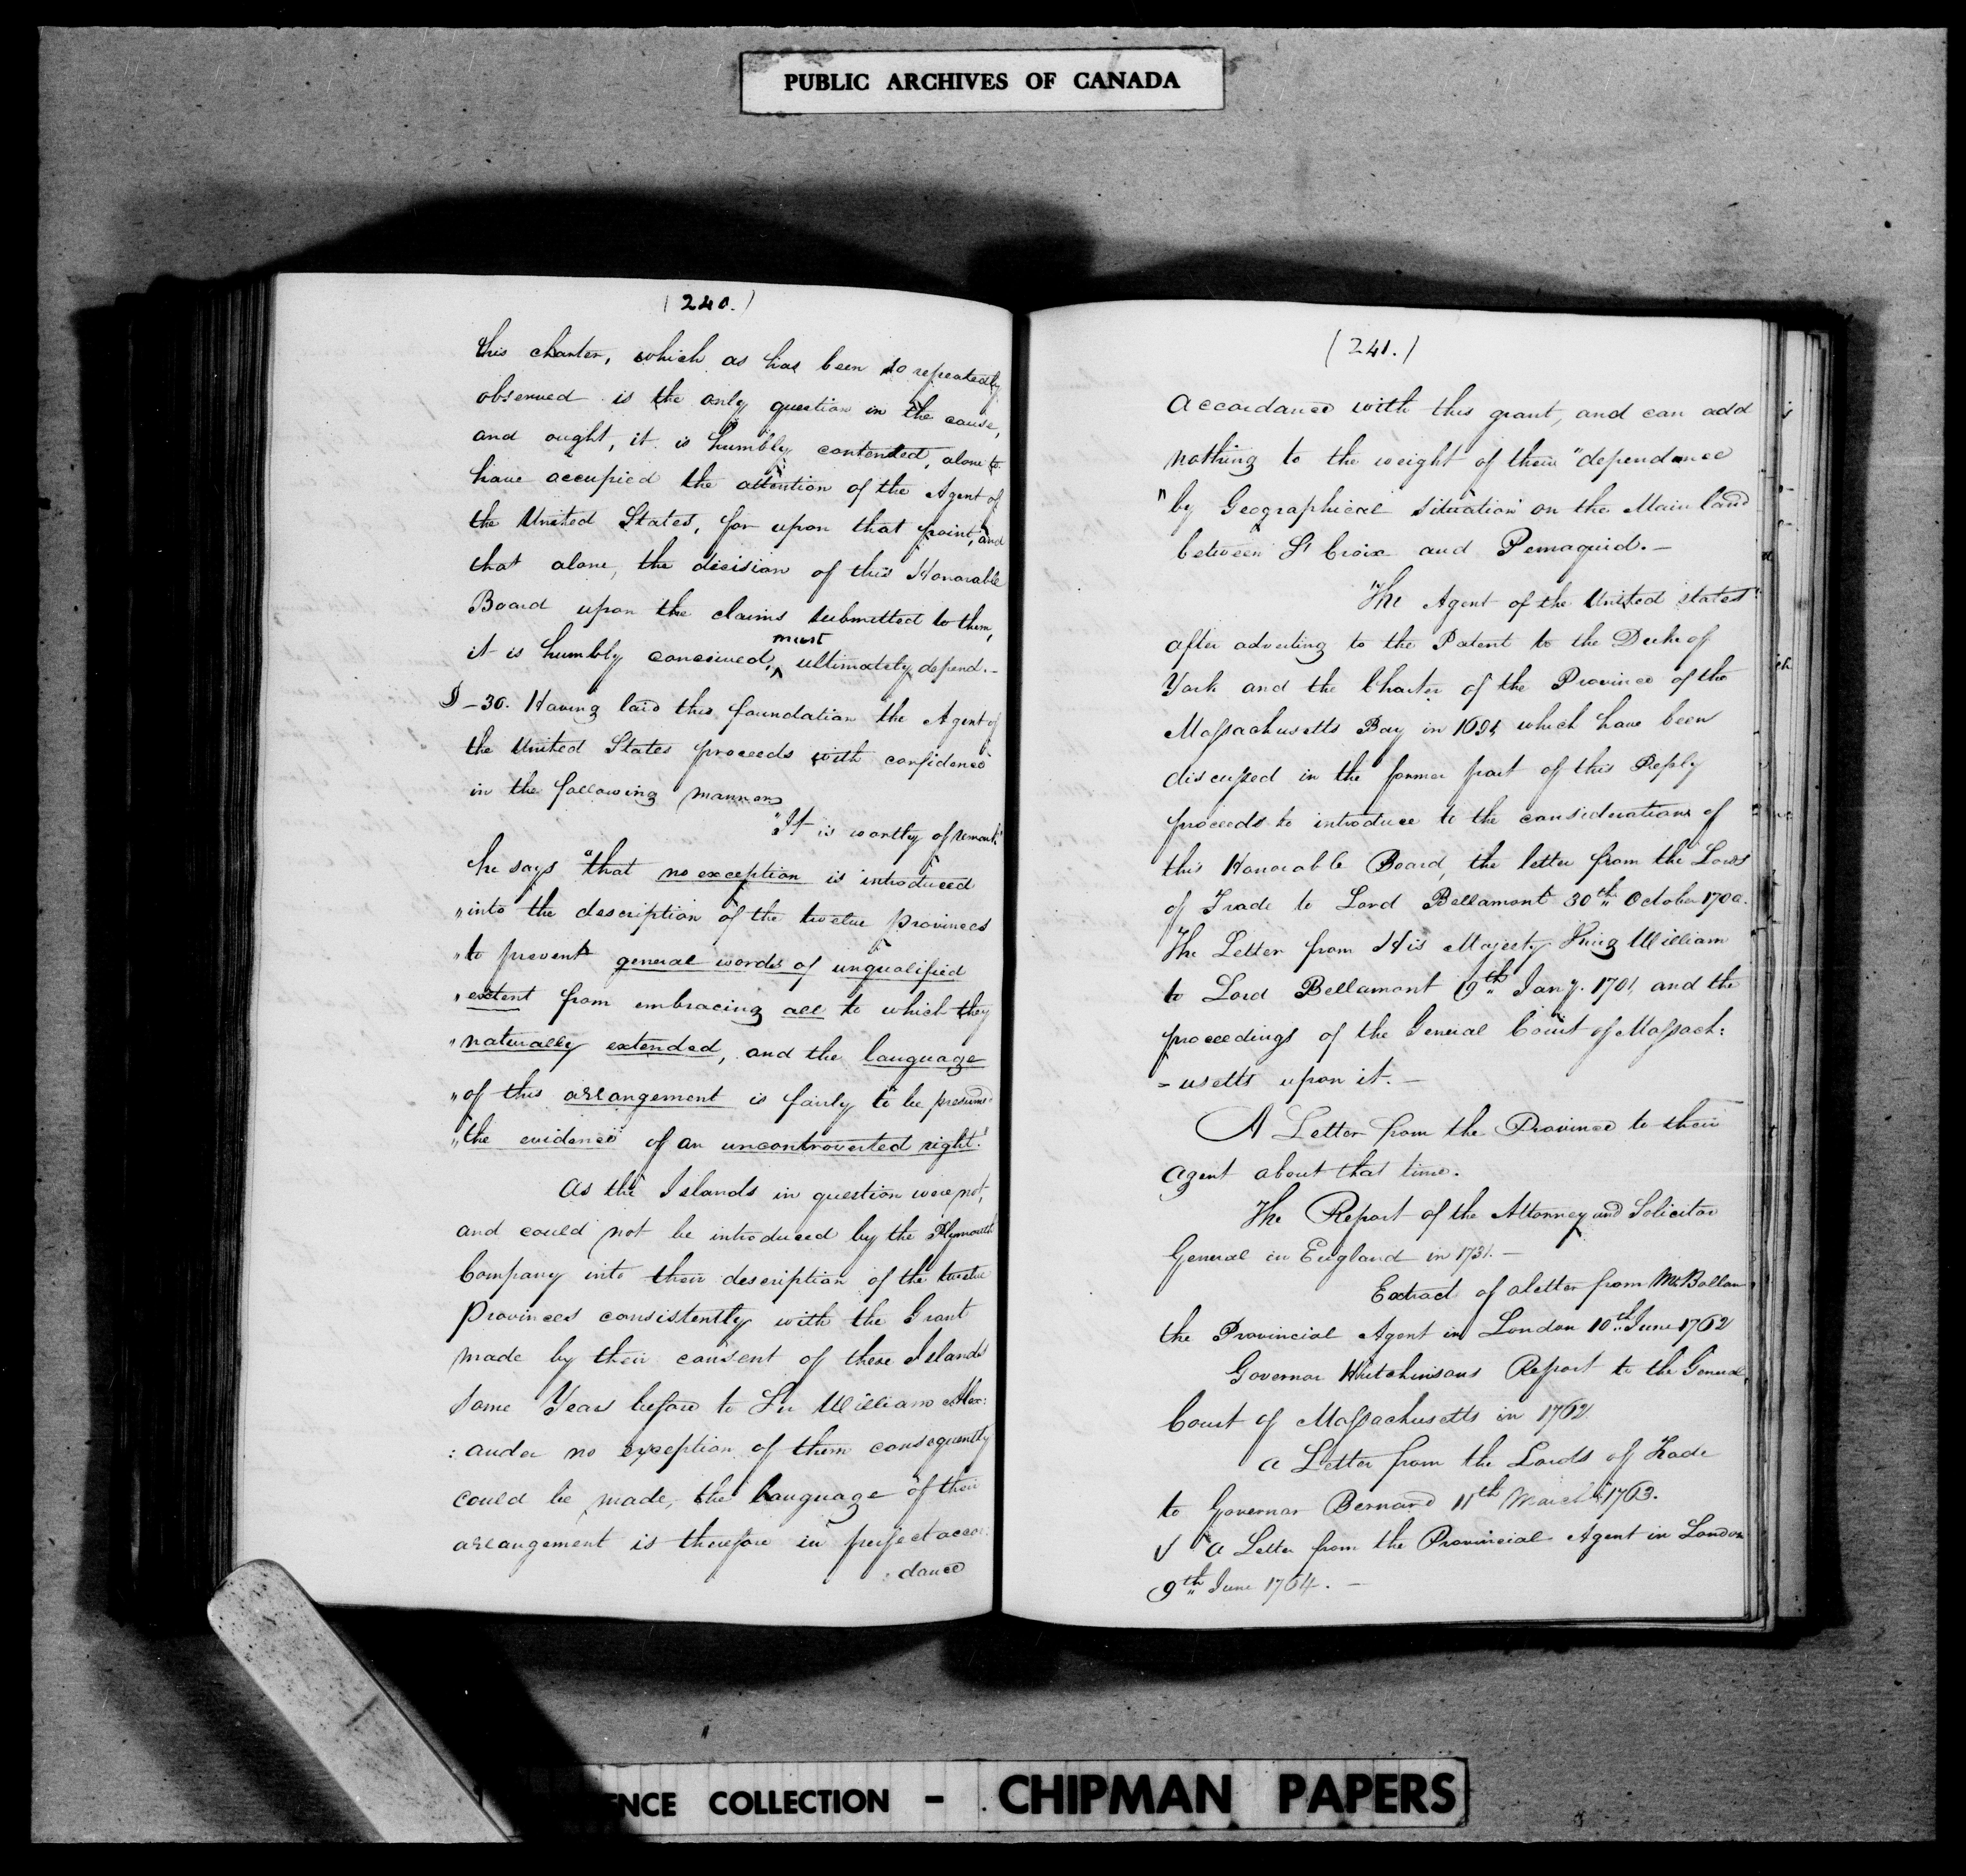 PUBLIC ARCHIVES OF CANADA
(240.)
this charter, which as has been so repeatedly
observed is the only question in the cause,
and ought, it is humbly contented, alone to
have accupied the attention of the Agent of
the United States, for upon that point, and
that alone, the decision of this Honorable
Board upon the claims submitted to them,
must
it is humbly conceived, ^ ultimately depend.-
§-30. Having laid this foundation the Agent of
the United States proceeds with confidence
in the following manner
"It is worthy of remark"
he says "that no exception is introduced
"into the description of the twelve provinces
"to prevent general words of unqualified
"extent from embracing all to which they
"naturally extended, and the language
"of this arrangement is fairly to be presumed
"the evidence of an uncontroverted right."
As the Islands in question were not,
and could not be introduced by the Plymouth
Company into their description of the twelve
Provinces consistently with the Grant
made by their consent of these Islands
some Years before to Sir William Alex:
:ander no exception of them consequently
could be made, the language of their
arrangement is therefore in perfect accor:
:dance
(241.)
accordance with this grant, and can add
nothing to the weight of their "dependence
"by Geographical situation" on the Main land
between St Croix and Pemaquid.-
"The Agent of the United States"
after adverting to the Patent to the Duke of
York and the Charter of the Province of the
Massachusetts Bay in 1691, which have been
discussed in the former part of this Reply
proceeds to introduce to the considerations of
this Honorable Board, the letter from the Lords
of Trade to Lord Bellamont 30th October 1700.
The Letter from His Majesty King William
to Lord Bellamont 19th Jany. 1701, and the
proceedings of the General Court of Massach:
=usetts upon it.-
A Letter from the Province to their
agent about that time.
The Report of the Attorney and Solicitor
General in England in 1731.-
Extract of a letter from Mr Bollan
the Provincial Agent in London 10th June 1762
Governor Hutchinsons Report to the General
Court of Massachusetts in 1762
a Letter from the Lords of Trade
to Governor Bernard 11th March 1763.
& a Letter from the Provincial Agent in London
9th June 1764.-
ENCE COLLECTION - CHIPMAN PAPERS